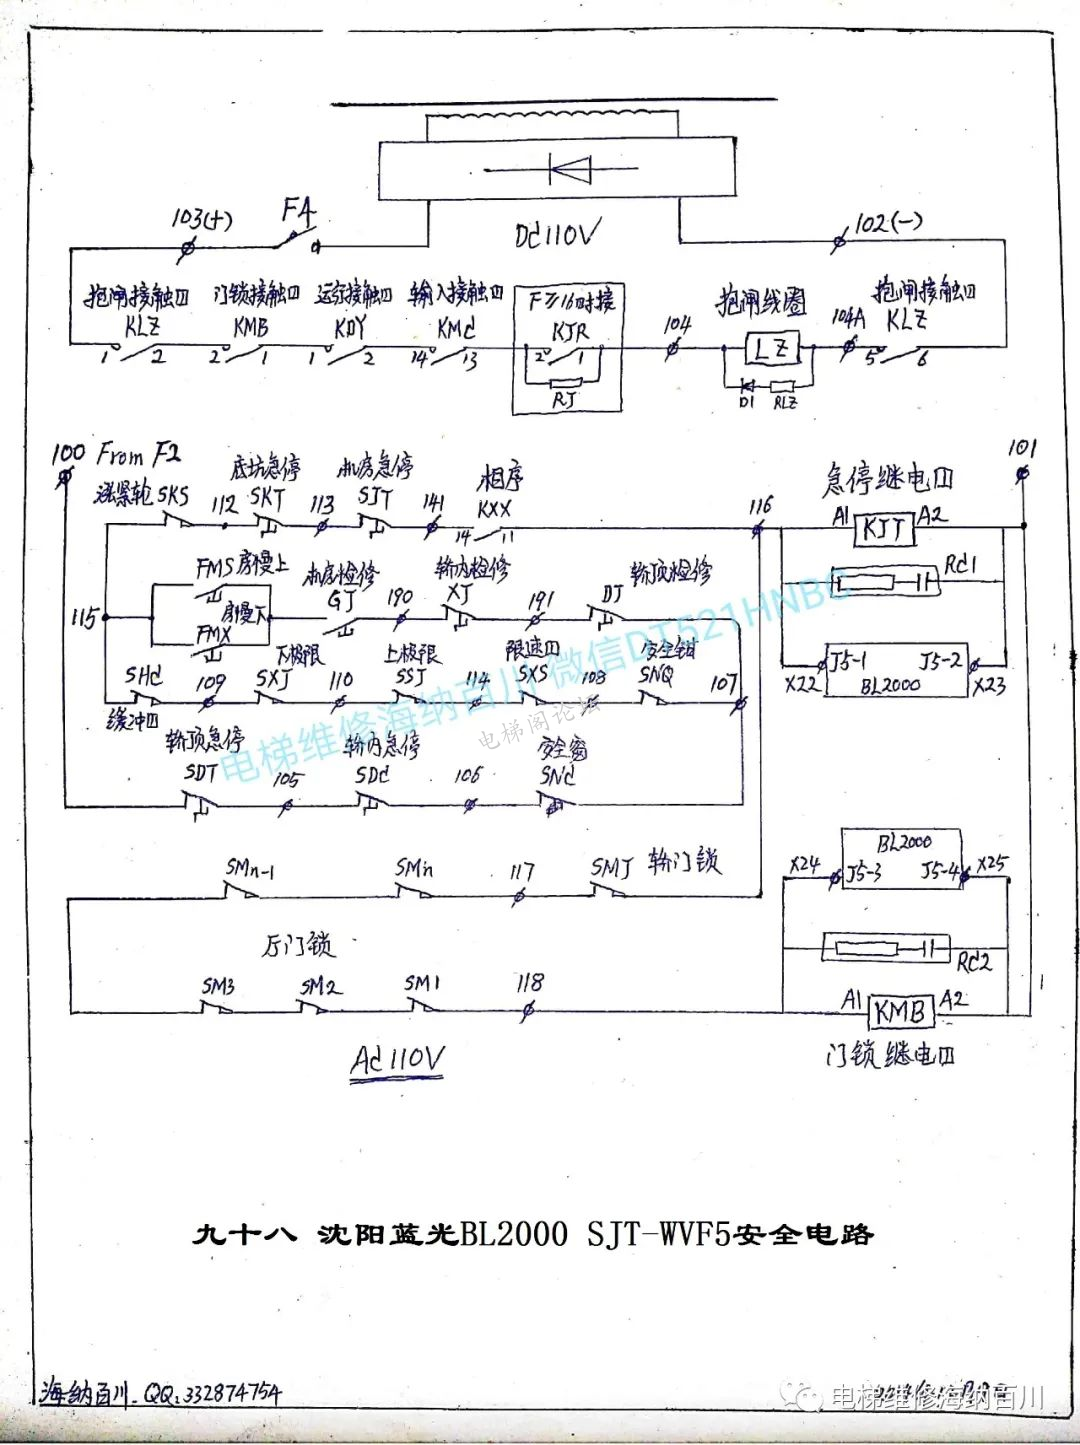 103(+)
F4
Dd110V
102(-)
抱闸接触四
KLZ
1 2
门锁接触四
KMB
2 1
运行接触四
KDY
1 2
输入接触四
KMd
14 13
F≥16时接
KJR
2 1
RJ
104
抱闸线圈
LZ
D1 RLZ
104A
抱闸接触四
KLZ
5 6
100 From F2
101
涨紧轮 SKS
112
底坑急停
SKT
113
机房急停
SJT
141
相序
KXX
14 11
116
急停继电四
A1 KJT A2
Rd1
J5-1 J5-2
X22 BL2000 X23
115
FMS 房慢上
房慢下
FMX
机房检修
GJ
190
轿内检修
XJ
191
轿顶检修
DJ
SHd
缓冲四
109
下极限
SXJ
110
上极限
SSJ
114
限速四
SXS
108
安全钳
SNQ
107
轿顶急停
SDT
105
轿内急停
SDd
106
安全窗
SNd
SMn-1
SMn
117
SMJ 轿门锁
BL2000
X24 J5-3 J5-4 X25
厅门锁
Rd2
SM3
SM2
SM1
118
A1 KMB A2
门锁继电四
Ad110V
电梯维修海纳百川 微信DT521HNBC
电梯阁论坛
九十八 沈阳蓝光BL2000 SJT-WVF5安全电路
海纳百川.QQ:332874754
电梯维修海纳百川